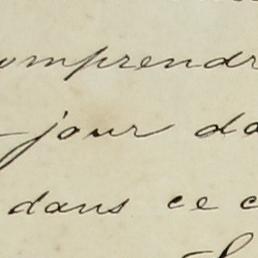 omprendr
jour da
dans ce c